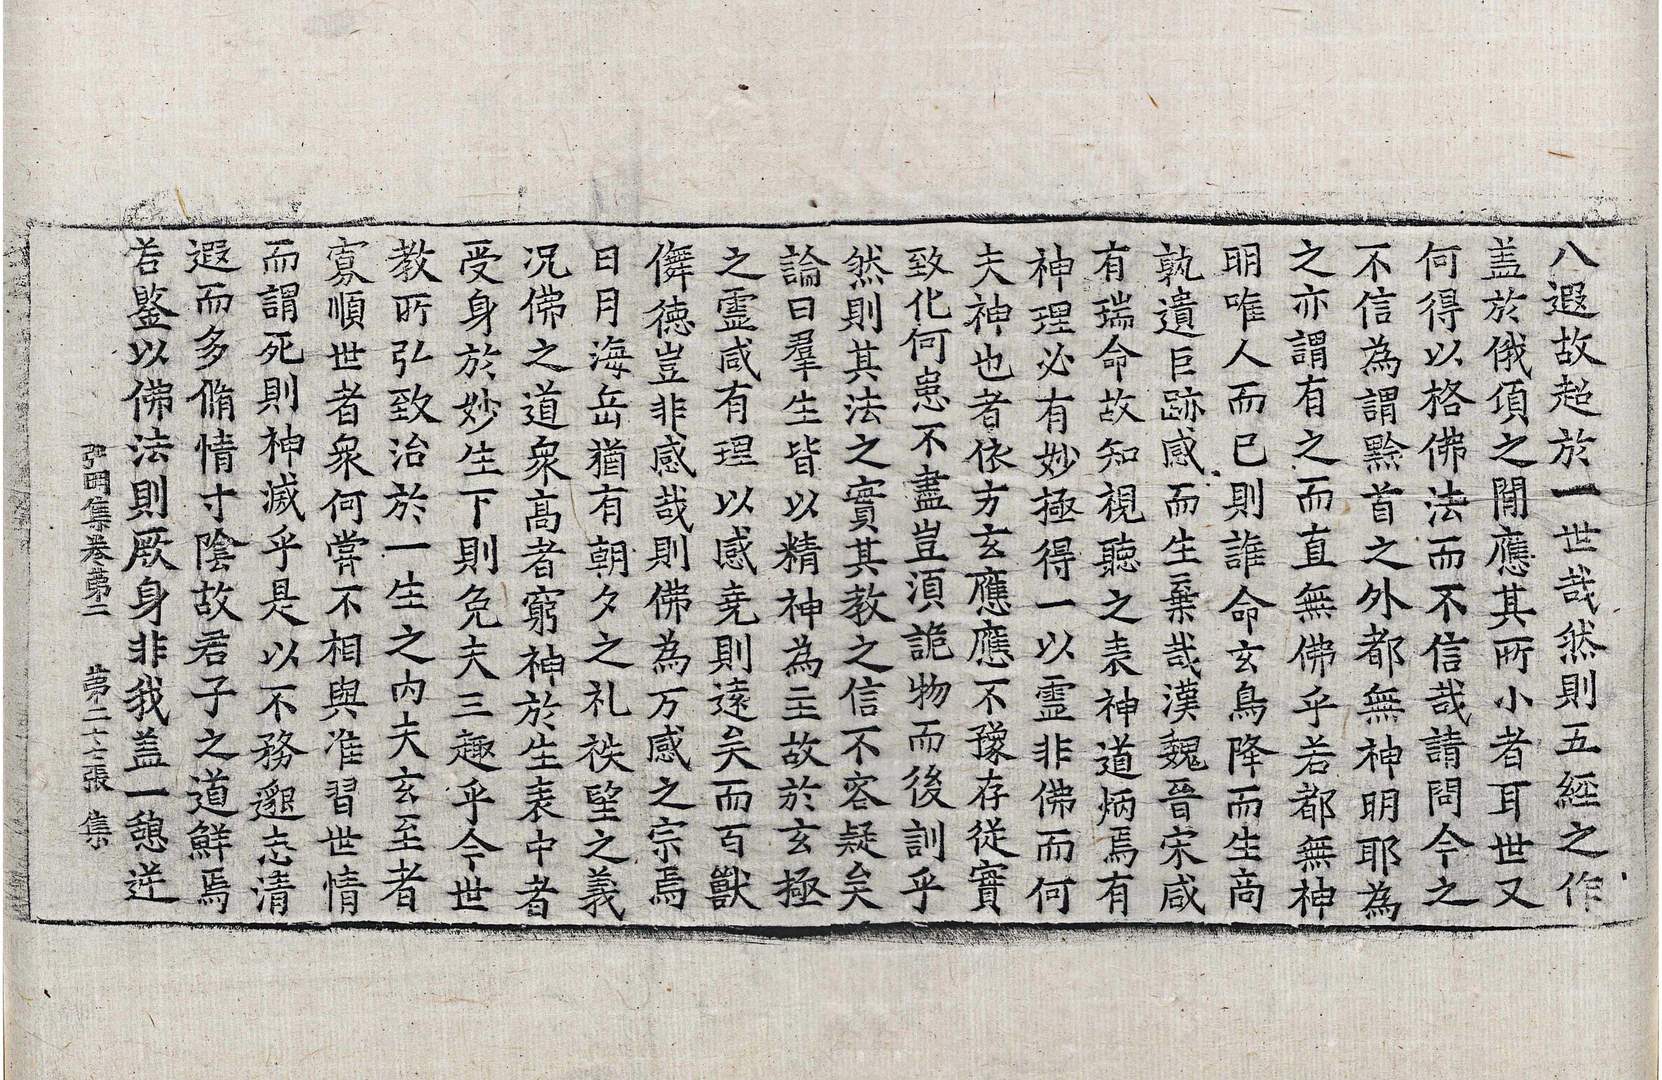 八遐故超於一世哉然則五經之作
盖於俄頃之間應其所小者耳世又
何得以格佛法而不信哉請問今之
不信為謂黔首之外都無神明耶為
之亦謂有之而直無佛乎若都無神
明唯人而已則誰命玄鳥降而生商
孰遺巨跡感而生棄哉漢魏晉宋咸
有瑞命故知視聽之表神道炳焉有
神理必有妙極得一以靈非佛而何
夫神也者依方玄應應不豫存從實
致化何患不盡豈須詭物而後訓乎
然則其法之實其教之信不容疑矣
論曰羣生皆以精神為主故於玄極
之靈咸有理以感堯則遠矣而百獸
儛徳豈非感哉則佛為万感之宗焉
日月海岳猶有朝夕之礼祑望之義
况佛之道衆高者窮神於生表中者
受身於妙生下則免夫三趣乎今世
教所弘致治於一生之內夫玄至者
寡順世者衆何嘗不相與准習世情
而謂死則神滅乎是以不務邈志清
遐而多脩情寸陰故君子之道鮮焉
若鑒以佛法則厥身非我盖一憩逆
弘明集卷第二 第二十七張 集